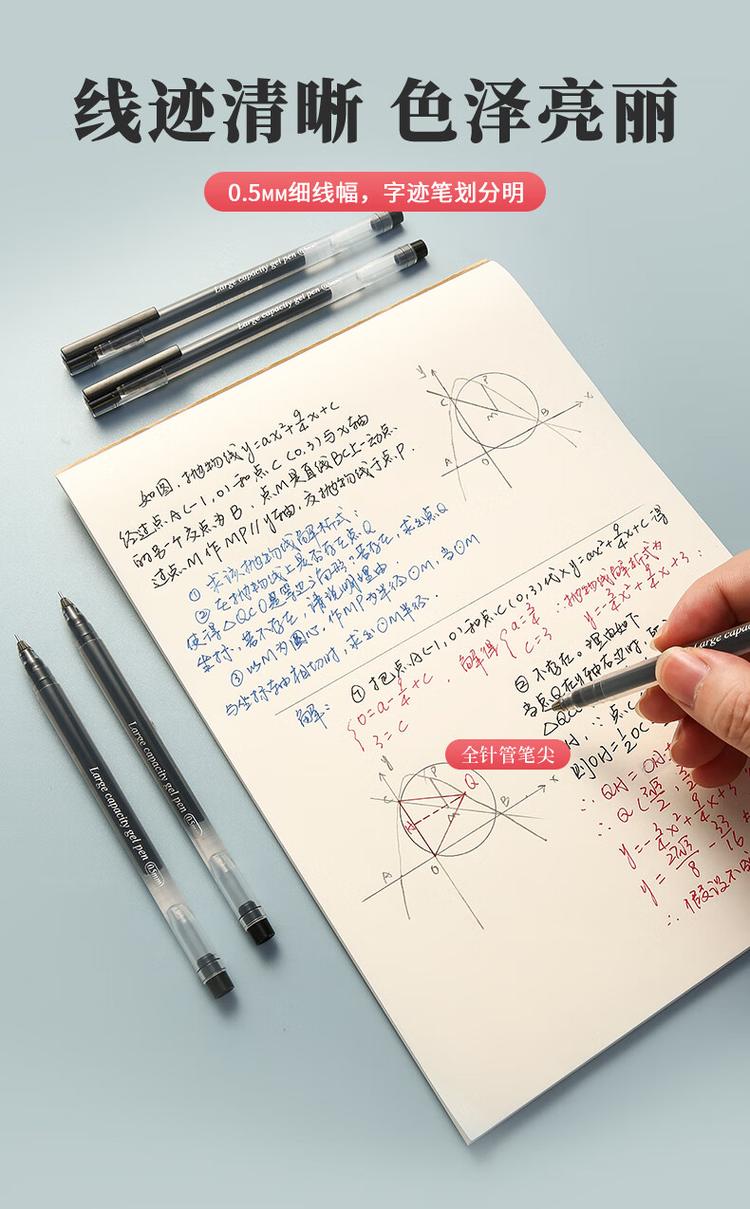 线迹清晰 色泽亮丽
0.5MM细线幅，字迹笔划分明
Large capacity gel pen 0.5mm
Large capacity gel pen
如图，抛物线y=ax²+9/4x+C
经过点A(-1,0)和点C(0,3)与x轴
的另一个交点为B，点M是直线BC上一动点，
过点M作MP//y轴，交抛物线于点P.
① 求该抛物线解析式；
② 在抛物线上是否存在点Q
使得△QCO是等边三角形？若存在，求出点Q
坐标，若不存在，请说明理由
③ 以M为圆心，作MP为半径⊙M，当⊙M
与坐标轴相切时，求出⊙M半径.
y
P
C
M
B
x
A
O
解：
① 把点A(-1,0)和点C(0,3)代入y=ax²+9/4x+C得
{0=a-9/4+C
3=C
解得{a=3/4
C=3
∴抛物线解析式为
y=-3/4x²+9/4x+3；
② 不存在。理由如下
当点Q在y轴右边时，
△QCO
H，∵点C
则OH=1/2OC
∴QH=
∴Q(
y=-3/4x²+9/4x+3
y=
8
16
∴假设不
全针管笔尖
y
P
C
Q
H
M
B
x
A
O
Large capacity gel pen
Large capacity gel pen 0.5mm
Large capacity